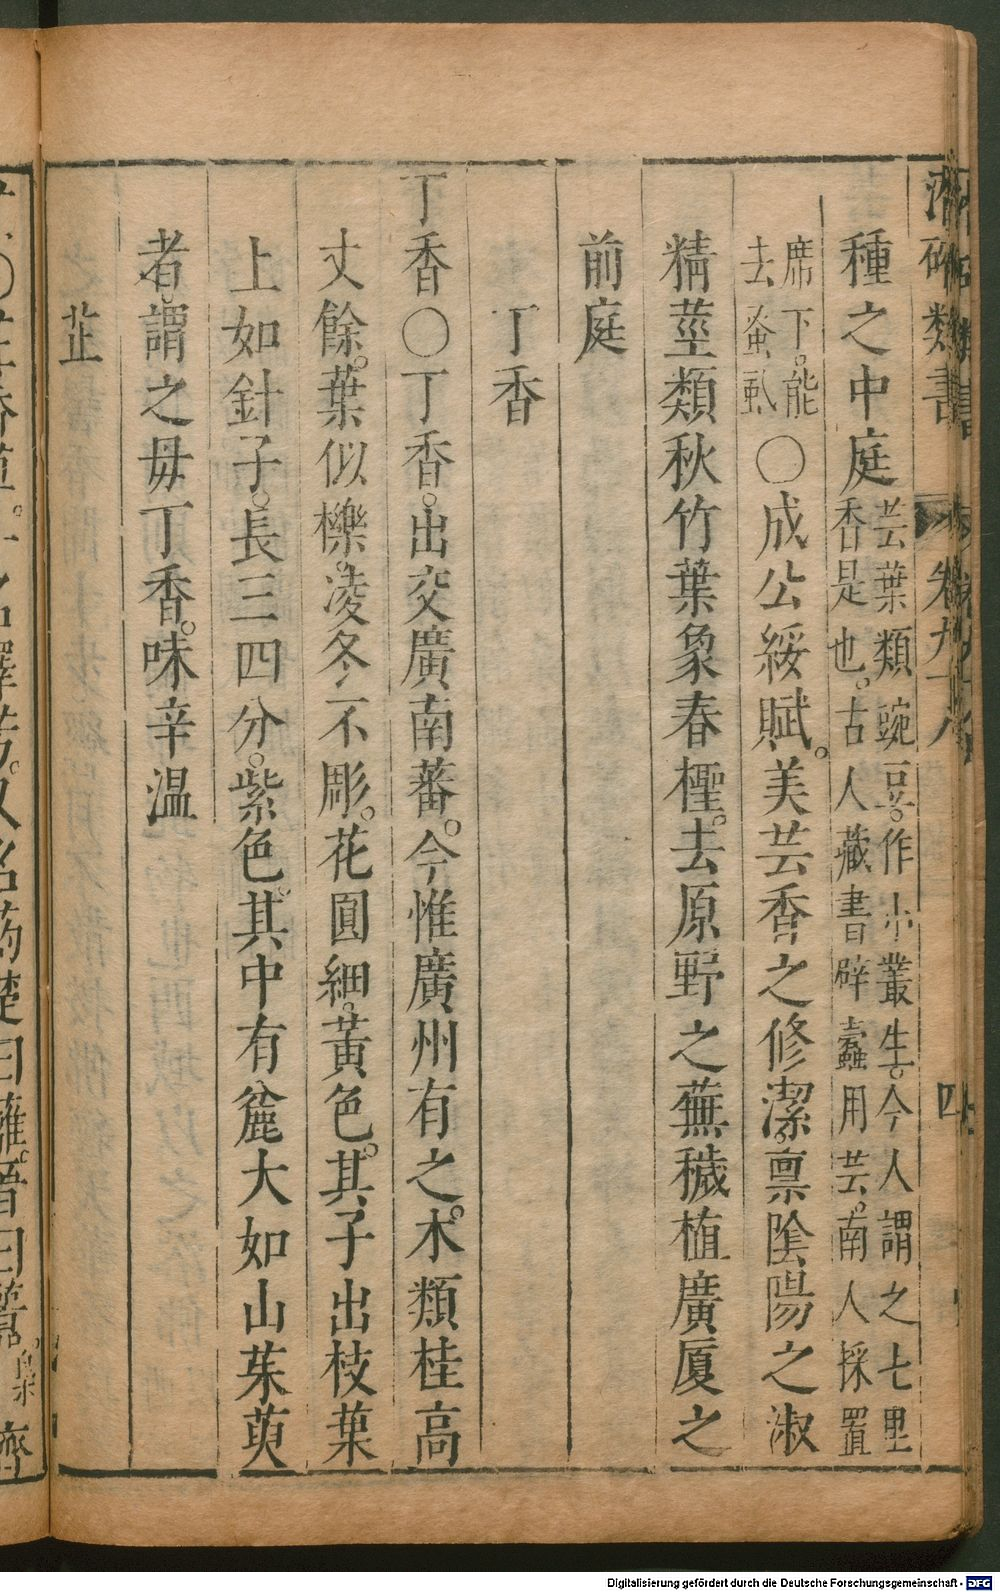 種之中庭芸葉類豌豆。作小叢生。今人謂之七里香是也。古人藏書辟蠹用芸。南人採置
席下。能去蚤虱〇成公綏賦。美芸香之修潔。禀陰陽之淑
精莖類秋竹葉象春檉。去原野之蕪穢植廣厦之
前庭
丁香
丁香〇丁香。出交廣南蕃。今惟廣州有之。木類桂高
丈餘。葉似櫟。凌冬不彫。花圓細。黃色。其子出枝葉
上如針子。長三四分。紫色。其中有麄大如山茱萸
者。謂之毋丁香。味辛温
芷
Digitalisierung gefördert durch die Deutsche Forschungsgemeinschaft - DFG